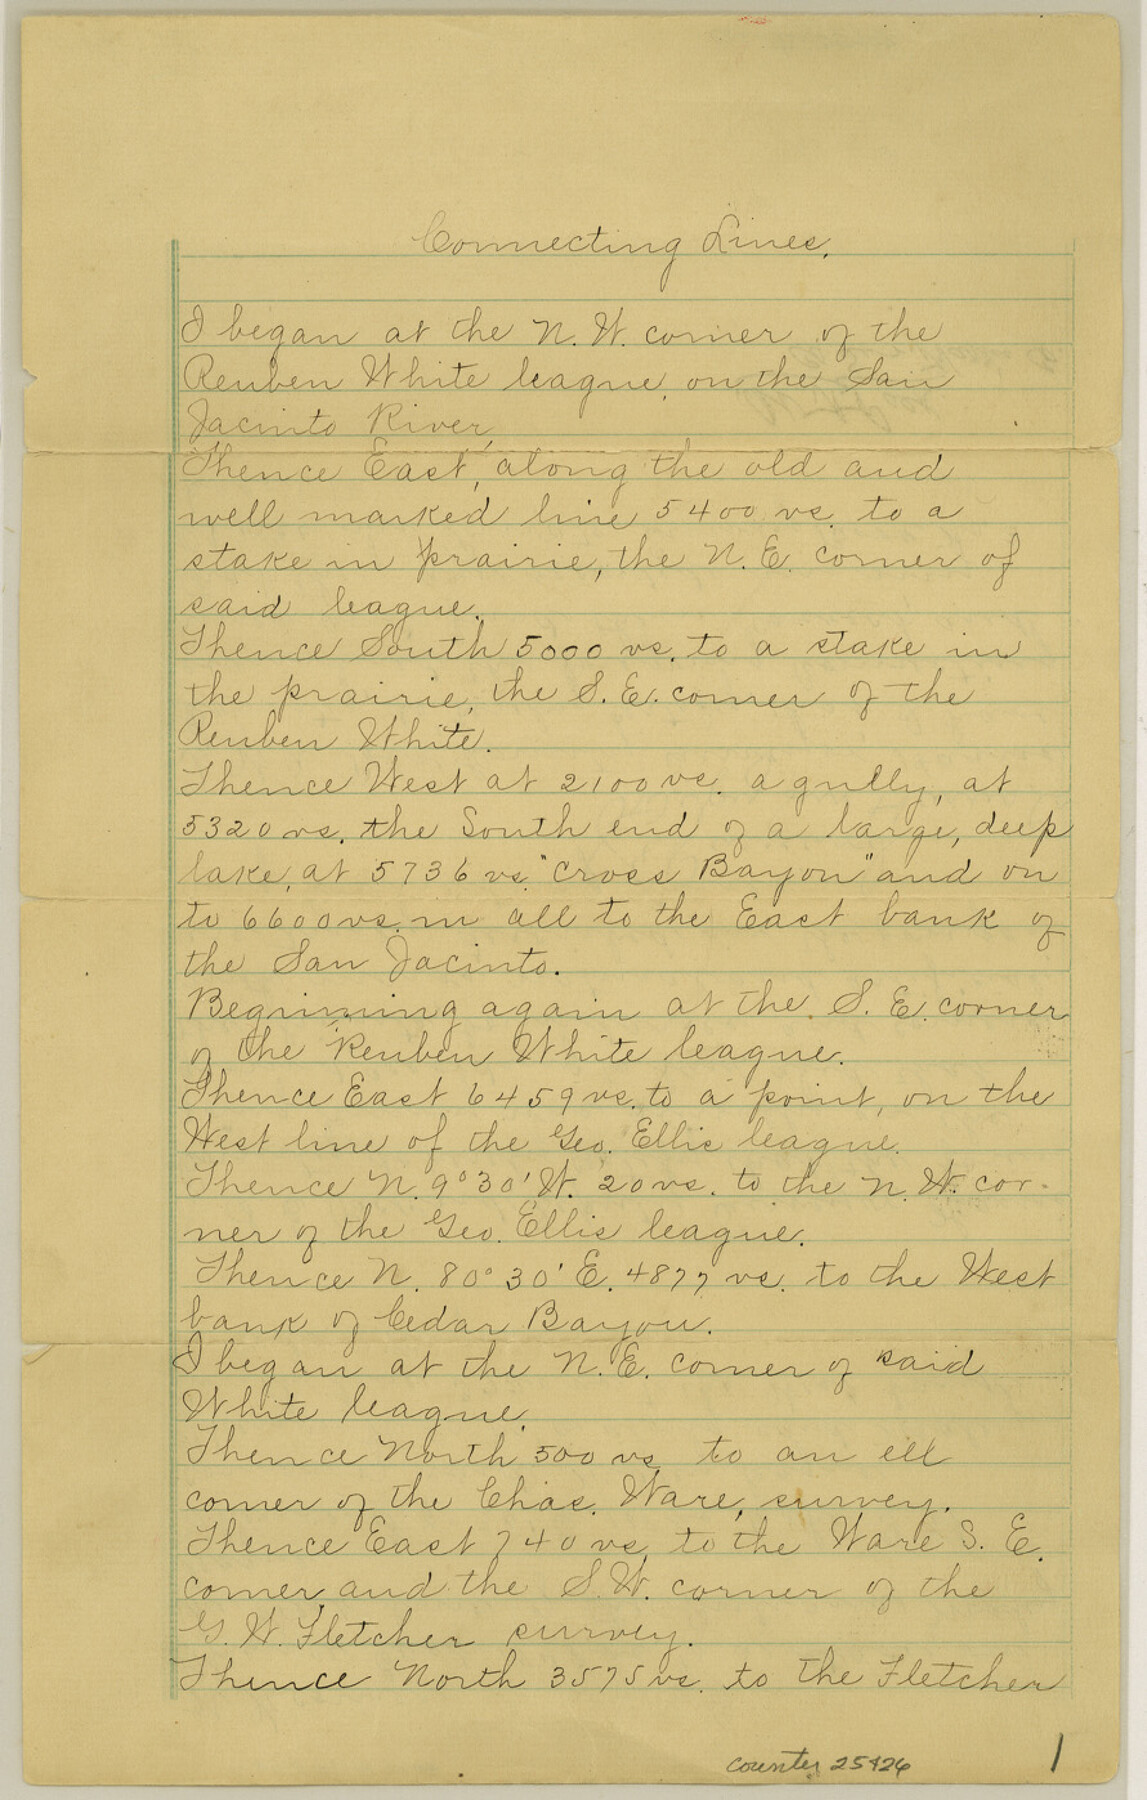 Connecting Lines.
I began at the N. W. corner of the
Reuben White league, on the San
Jacinto River,
Thence East, along the old and
well marked line 5400 vs. to a
stake in prairie, the N. E. corner of
said league.
Thence South 5000 vs. to a stake in
the prairie, the S. E. corner of the
Reuben White.
Thence West at 2100 vs. a gully, at
5320 vs. the South end of a large, deep
lake, at 5736 vs. "Cross Bayou" and on
to 6600 vs. in all to the East bank of
the San Jacinto.
Beginning again at the S. E. corner
of the Reuben White league.
Thence East 6459 vs. to a point, on the
West line of the Geo. Ellis league.
Thence N. 9° 30' W. 20 vs. to the N. W. cor-
ner of the Geo. Ellis league.
Thence N. 80° 30' E. 4877 vs. to the West
bank of Cedar Bayou.
I began at the N. E. corner of said
White league.
Thence North 500 vs. to an ell
corner of the Chas. Ware, survey.
Thence East 740 vs. to the Ware S. E.
corner, and the S. W. corner of the
G. W. Fletcher survey.
Thence North 3575 vs. to the Fletcher
counter 25426
1